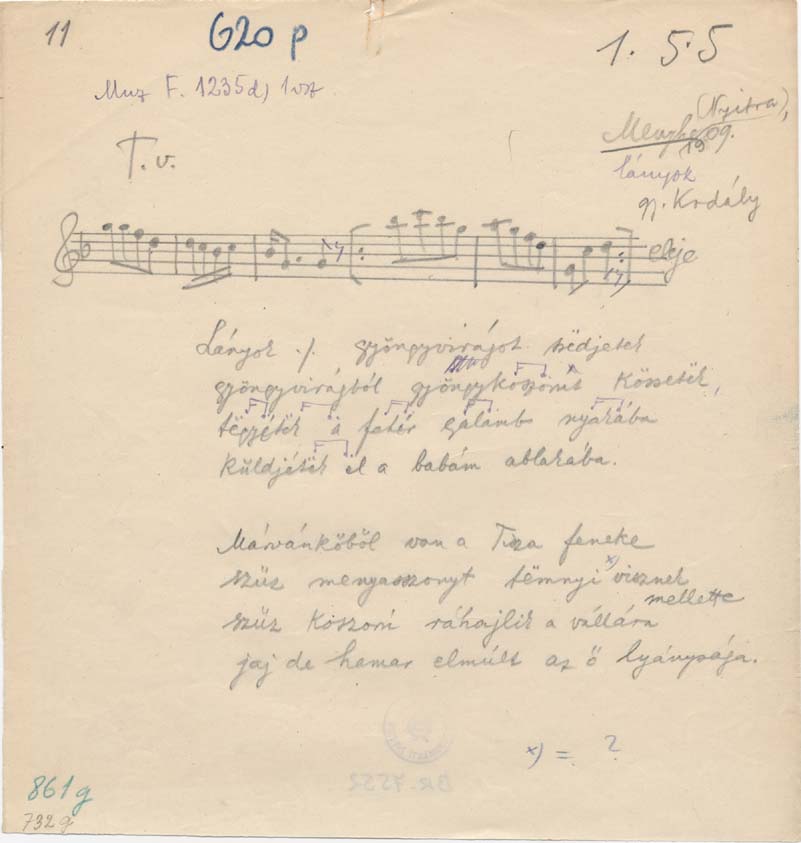 11
620 p
1. 5.5
Muz F. 1235d) 1vsz.
(Nyitra),
1909.
T. v.
lányok
gy. Kodály
eleje
Lányok ./. gyöngyvirágot szëdjetek
gyöngyvirágból gyöngykoszorút kössetek,
a fehír galamb nyakába
küldjétëk ël a babám ablakába.
Márvánkőből van a Tisza feneke
szűz menyasszonyt tëmnyi x) visznek
mellette
szűz koszorú ráhajlik a vállára
jaj de hamar elmúlt az ő lyánysága.
x) = ?
861g
732 g